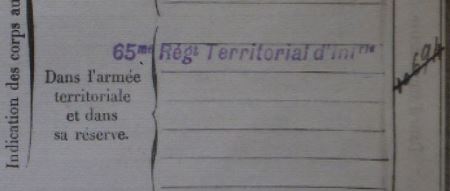 Indication des corps au
65me Régt Territorial d'Infrie
Dans l'armée
territoriale
et dans
sa réserve.